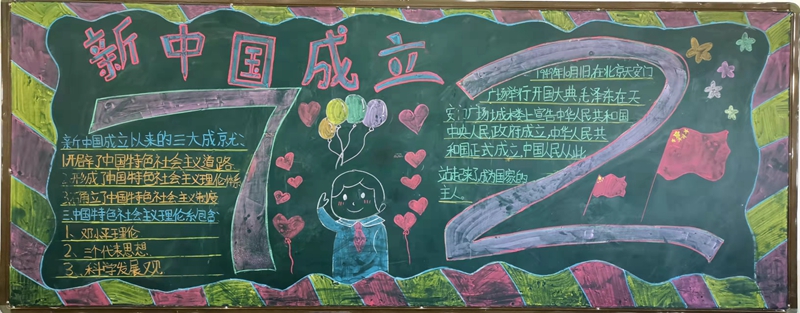 新中国成立
72
新中国成立以来的三大成就：
1.开辟了中国特色社会主义道路
2.形成了中国特色社会主义理论体系
3.确立了中国特色社会主义制度
三.中国特色社会主义理论体系包含
1、邓小平理论
2、三个代表思想
3、科学发展观
1949年10月1日在北京天安门
广场举行开国大典毛泽东在天
安门广场城楼上宣告中华人民共和国
中央人民政府成立,中华人民共
和国正式成立,中国人民从此
站起来了成为国家的
主人。